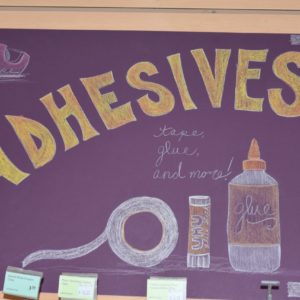 ADHESIVES
tape,
glue,
and more!
UHU
glue